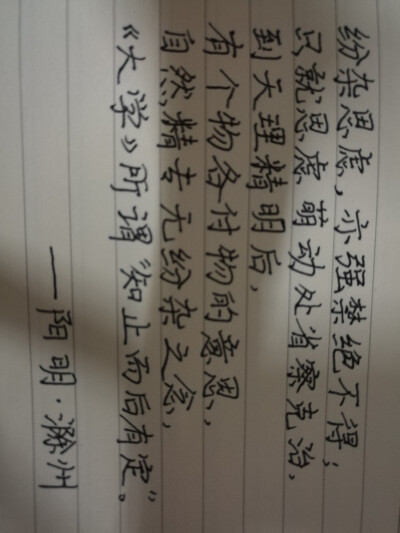 纷杂思虑，亦强禁绝不得；
只就思虑萌动处省察克治，
到天理精明后，
有个物各付物的意思，
自然精专无纷杂之念，
《大学》所谓“知止而后有定”。
——阳明·滁州